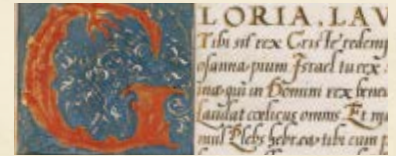 GLORIA. LAV
Tibi sit rex Criste redemp
osanna pium Israel tu rex
ina qui in Domini rex bene
laudat coelicus omnis Et
Plebs hebrea tibi cum p